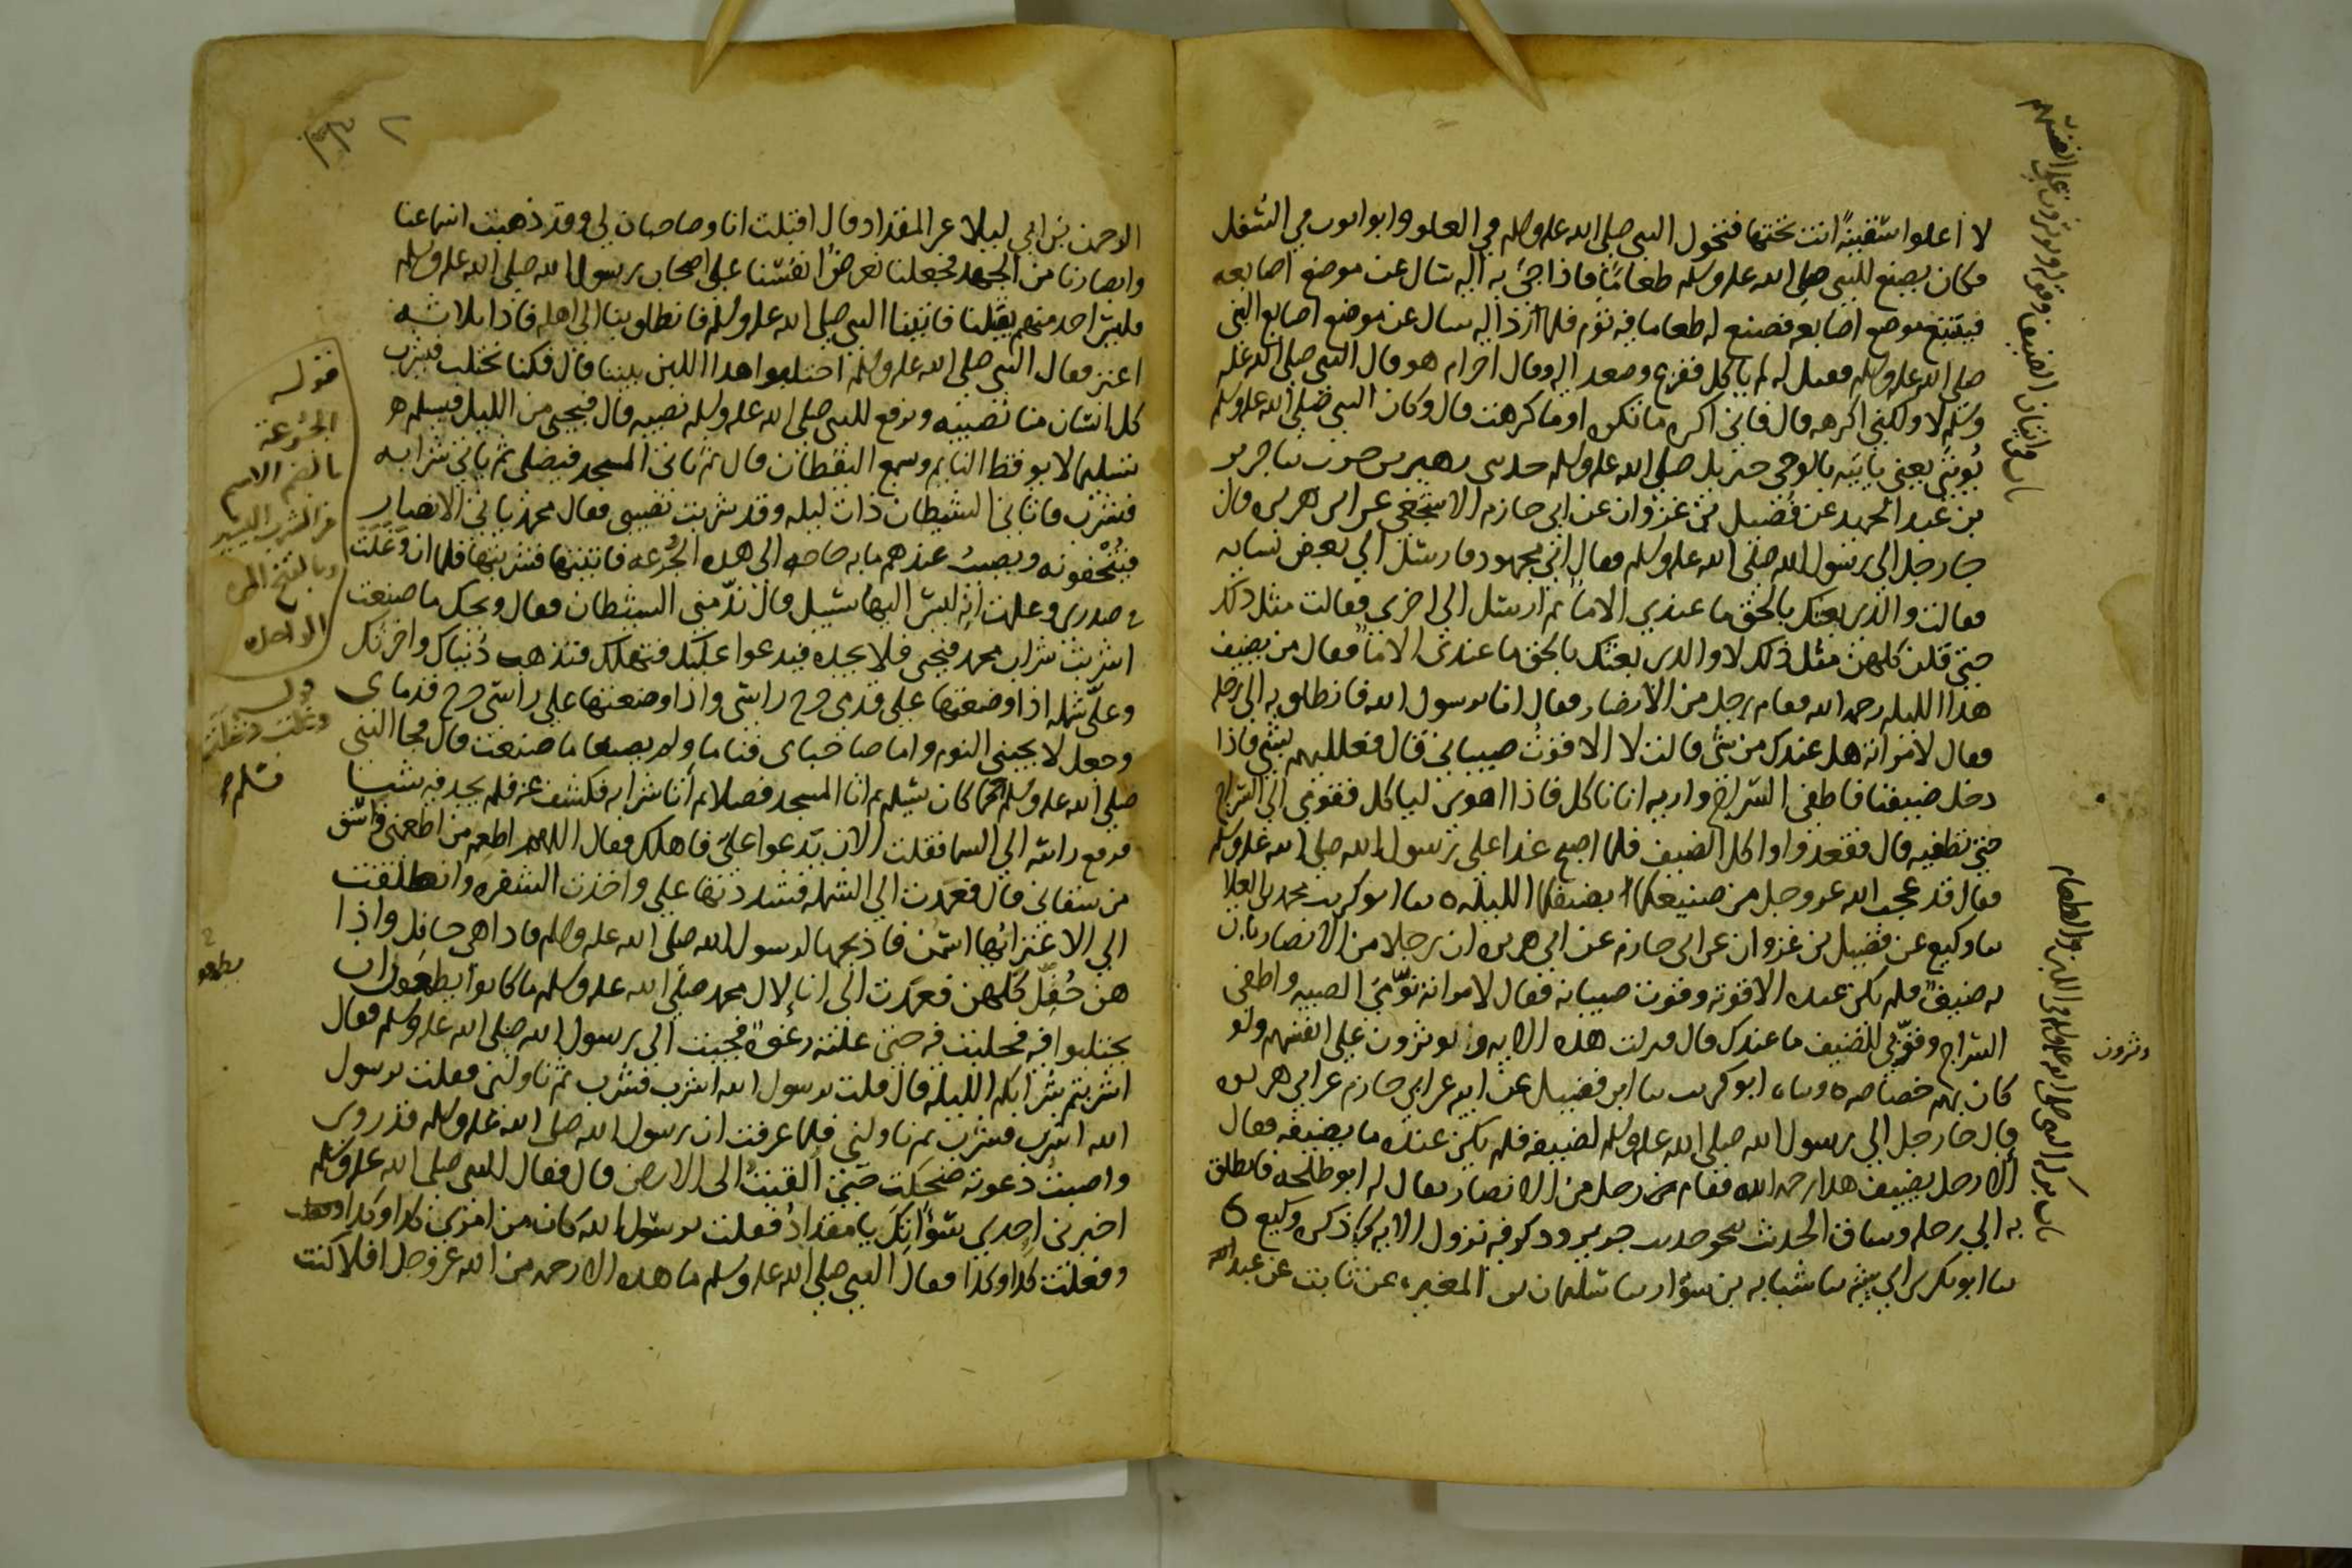 لا اعلوا سقيفة انت تحتها فتحول النبي صلى الله عليه وسلم في العلو وابو ايوب في السفل
فكان يصنع للنبي صلى الله عليه وسلم طعاما فاذا جئ به اليه سال عن موضع اصابعه
فيتتبع موضع اصابعه فصنع له طعاما فيه ثوم فلما رد اليه سال عن موضع اصابع النبي
صلى الله عليه وسلم فقيل له لم ياكل ففزع وصعد اليه وقال احرام هو قال النبي صلى الله عليه
وسلم لا ولكني اكرهه قال فاني اكره ما تكره او ما كرهت قال وكان النبي صلى الله عليه وسلم
يؤتى يعني ياتيه بالوحي جبريل صلى الله عليه وسلم حدثني زهير بن حرب ثنا جرير
بن عبد الحميد عن فضيل بن غزوان عن ابي حازم الاشجعي عن ابي هريرة قال
جا رجل الى رسول الله صلى الله عليه وسلم فقال اني مجهود فارسل الى بعض نسايه
فقالت والذي بعثك بالحق ما عندي الا ما ثم ارسل الى اخرى فقالت مثل ذلك
حتى قلن كلهن مثل ذلك لا والذي بعثك بالحق ما عندي الا ما فقال من يضيف
هذا الليله رحمه الله فقام رجل من الانصار فقال انا يرسول الله فانطلق به الى رحله
فقال لامراته هل عندك من شي قالت لا الا قوت صبياني قال فعلليهم بشي فاذا
دخل ضيفنا فاطفي السراج واريه انا ناكل فاذا اهوى لياكل فقومي الى السراج
حتى تطفيه قال فقعدوا واكل الضيف فلما اصبح غدا على رسول الله صلى الله عليه وسلم
فقال قد عجب الله عز وجل من صنيعكما بضيفكما الليله ثنا ابو كريب محمد بن العلا
ثنا وكيع عن فضيل بن غزوان عن ابي حازم عن ابي هريره ان رجلا من الانصار بات
به ضيف فلم يكن عنده الا قوته وقوت صبيانه فقال لامراته نومي الصبيه واطفي
السراج وقربي للضيف ما عندك قال فنزلت هذه الايه ويوثرون على انفسهم ولو
كان بهم خصاصه وثناه ابو كريب ثنا ابن فضيل عن ابيه عن ابي حازم عن ابي هريره
قال جا رجل الى رسول الله صلى الله عليه وسلم ليضيفه فلم يكن عنده ما يضيفه فقال
الا رجل يضيف هذا رحمه الله فقام رجل من الانصار يقال له ابو طلحه فانطلق
به الى رحله وساق الحديث بنحو حديث جرير وذكر فيه نزول الايه كما ذكره وكيع
ثنا ابو بكر بن ابي شيبه ثنا شبابه بن سوار ثنا سليمان بن المغيره عن ثابت عن عبد
ويوثرون
الرحمن بن ابي ليلا عن المقداد قال اقبلت انا وصاحبان لي وقد ذهبت اسماعنا
وابصارنا من الجهد فجعلنا نعرض انفسنا على اصحاب رسول الله صلى الله عليه وسلم
فليس احد منهم يقبلنا فاتينا النبي صلى الله عليه وسلم فانطلق بنا الى اهله فاذا ثلاثة
اعنز فقال النبي صلى الله عليه وسلم احتلبوا هذا اللبن بيننا قال فكنا نحتلب فيشرب
كل انسان منا نصيبه ونرفع للنبي صلى الله عليه وسلم نصيبه قال فيجي من الليل فيسلم
تسليما لا يوقظ النايم ويسمع اليقظان قال ثم ياتي المسجد فيصلي ثم ياتي شرابه
فيشرب فاتاني الشيطان ذات ليله وقد شربت نصيبي فقال محمد ياتي الانصار
فيتحفونه ويصيب عندهم ما به حاجه الى هذه الجرعه فاتيتها فشربتها فلما ان وغلت
في صدري وعلمت انه ليس اليها سبيل قال ندمني الشيطان فقال ويحك ما صنعت
اشربت شراب محمد فيجي فلا يجده فيدعوا عليك فتهلك فتذهب دنياك واخرتك
وعلي شمله اذا وضعتها على قدمي خرج راسي واذا وضعتها على راسي خرج قدماي
وجعل لا يجيني النوم واما صاحباي فناما ولم يصنعا ما صنعت قال فجا النبي
صلى الله عليه وسلم كما كان يسلم ثم اتا المسجد فصلا ثم اتا شرابه فكشف عنه فلم يجد فيه شيا
فرفع راسه الى السما فقلت الان يدعوا علي فاهلك فقال اللهم اطعم من اطعمني واسق
من سقاني قال فعمدت الى الشمله فشددتها علي واخذت الشفره وانطلقت
الى الاعنز ايها اسمن فاذبحها لرسول الله صلى الله عليه وسلم فاذا هي حافل واذا
هن حفل كلهن فعمدت الى انا لال محمد صلى الله عليه وسلم ما كانوا يطمعون ان
يحتلبوا فيه فحلبت فيه حتى علته رغوة فجيت الى رسول الله صلى الله عليه وسلم فقال
اشربتم شرابكم الليله قال قلت يرسول الله اشرب فشرب ثم ناولني فقلت يرسول
الله اشرب فشرب ثم ناولني فلما عرفت ان رسول الله صلى الله عليه وسلم قد روى
واصبت دعوته ضحكت حتى القيت الى الارض قال فقال النبي صلى الله عليه وسلم
احدى سواتك يا مقداد فقلت يرسول الله كان من امري كذا وكذا
وفعلت كذا وكذا فقال النبي صلى الله عليه وسلم ما هذه الا رحمه من الله عز وجل افلا كنت
قوله
الجرعة
بالضم الاسم
من الشرب اليسير
وبالفتح المرة
الواحدة